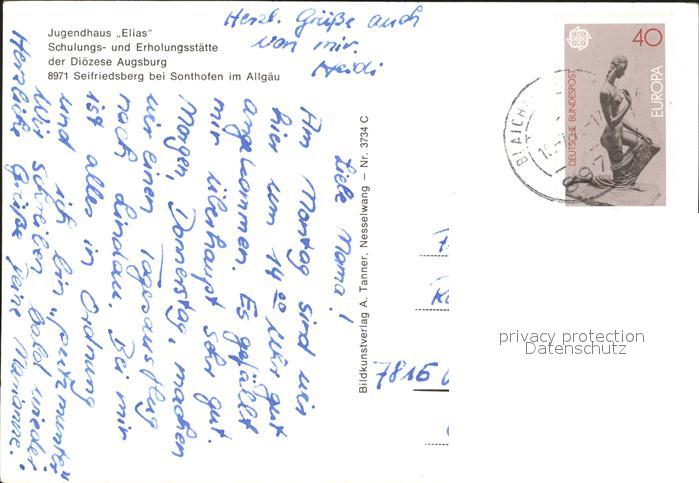 Jugendhaus „Elias"
Schulungs- und Erholungsstätte
der Diözese Augsburg
8971 Seifriedsberg bei Sonthofen im Allgäu
Herzl. Grüße auch
von mir.
Heidi
Liebe Mama!
Am Montag sind wir
hier um 14⁰⁰ Uhr gut
angekommen. Es gefällt
mir überhaupt sehr gut.
Morgen, Donnerstag, machen
wir einen Tagesausflug
nach Lindau. Bei mir
ist alles in Ordnung
und ich bin „putzmunter"
Wir schreiben bald wieder.
Herzliche Grüße Deine Marianne.
Bildkunstverlag A. Tanner, Nesselwang – Nr. 3734 C
7816
BLAICH
DEUTSCHE BUNDESPOST
40
EUROPA
privacy protection
Datenschutz